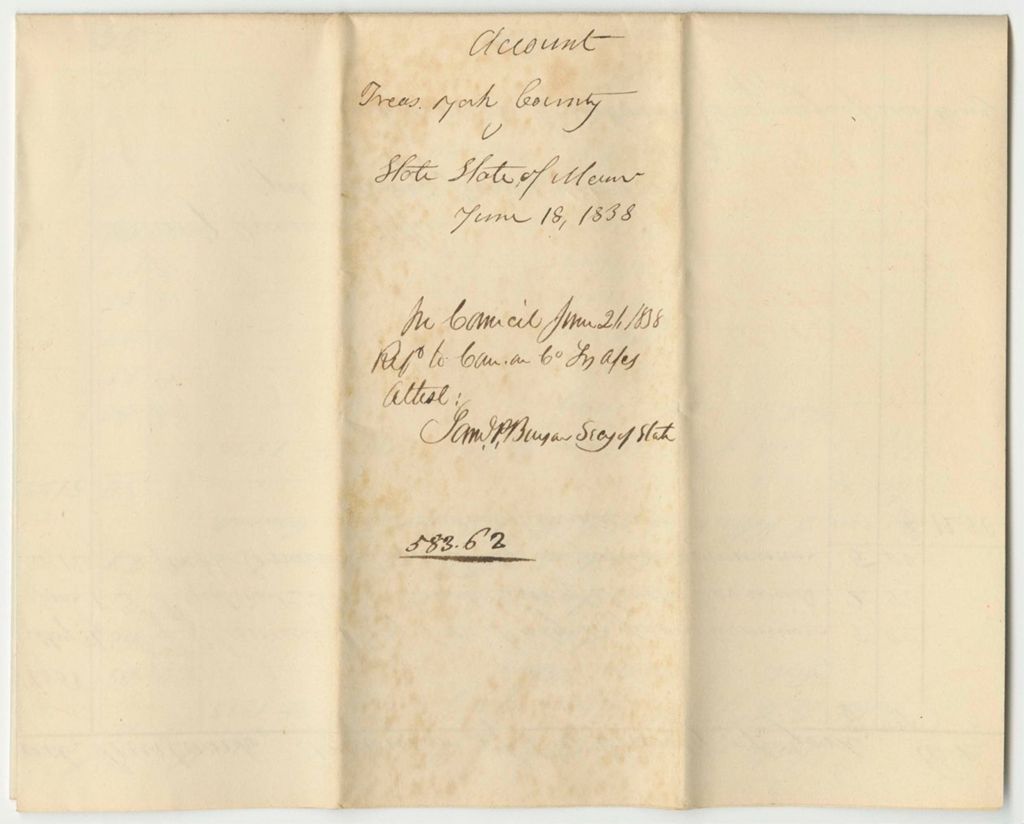 Account
Treas. York County
v
State State of Maine
June 18, 1838
In Council June 21, 1838
Refd to Com. on Co Try Afcs
Attest:
Saml P. Benson Secy of State
583.62